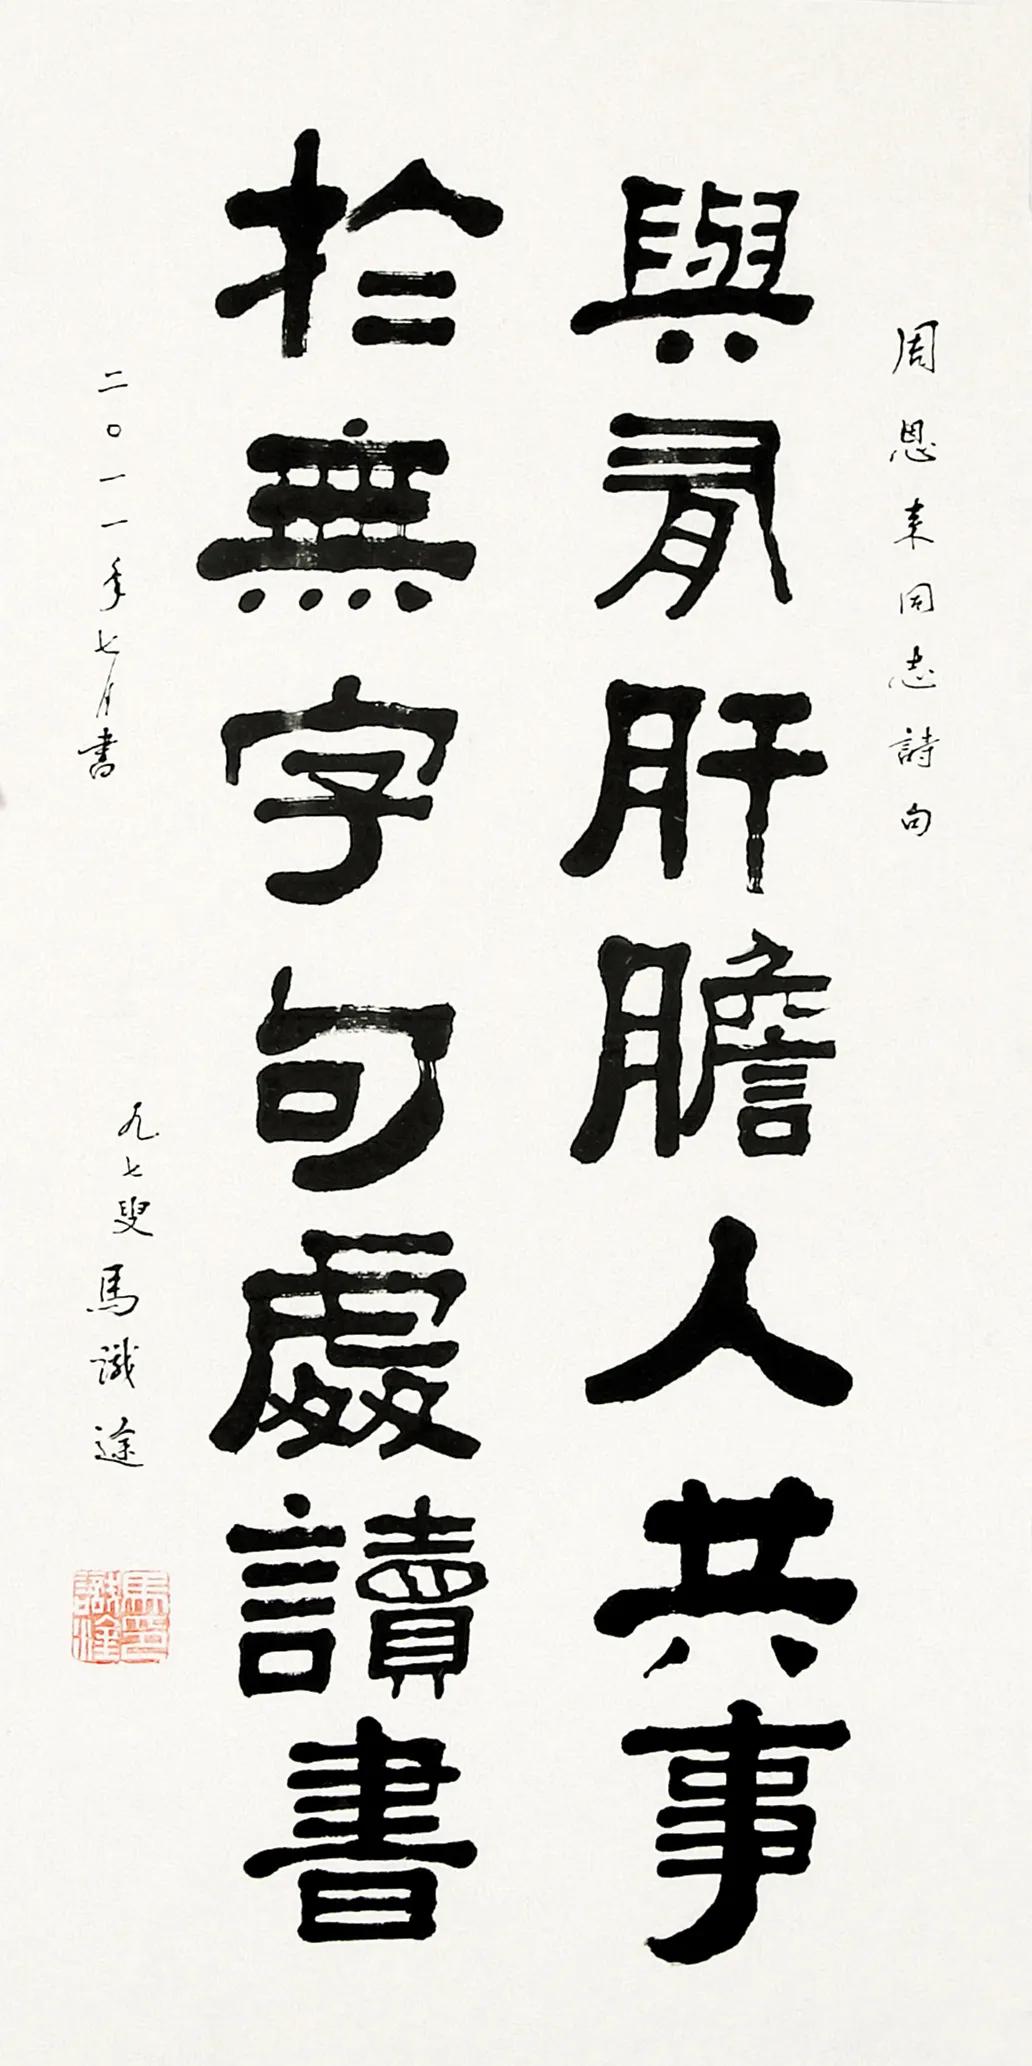 周恩来同志詩句
與有肝膽人共事
於無字句處讀書
二〇一一年七月書
九七叟馬識途
馬識途印